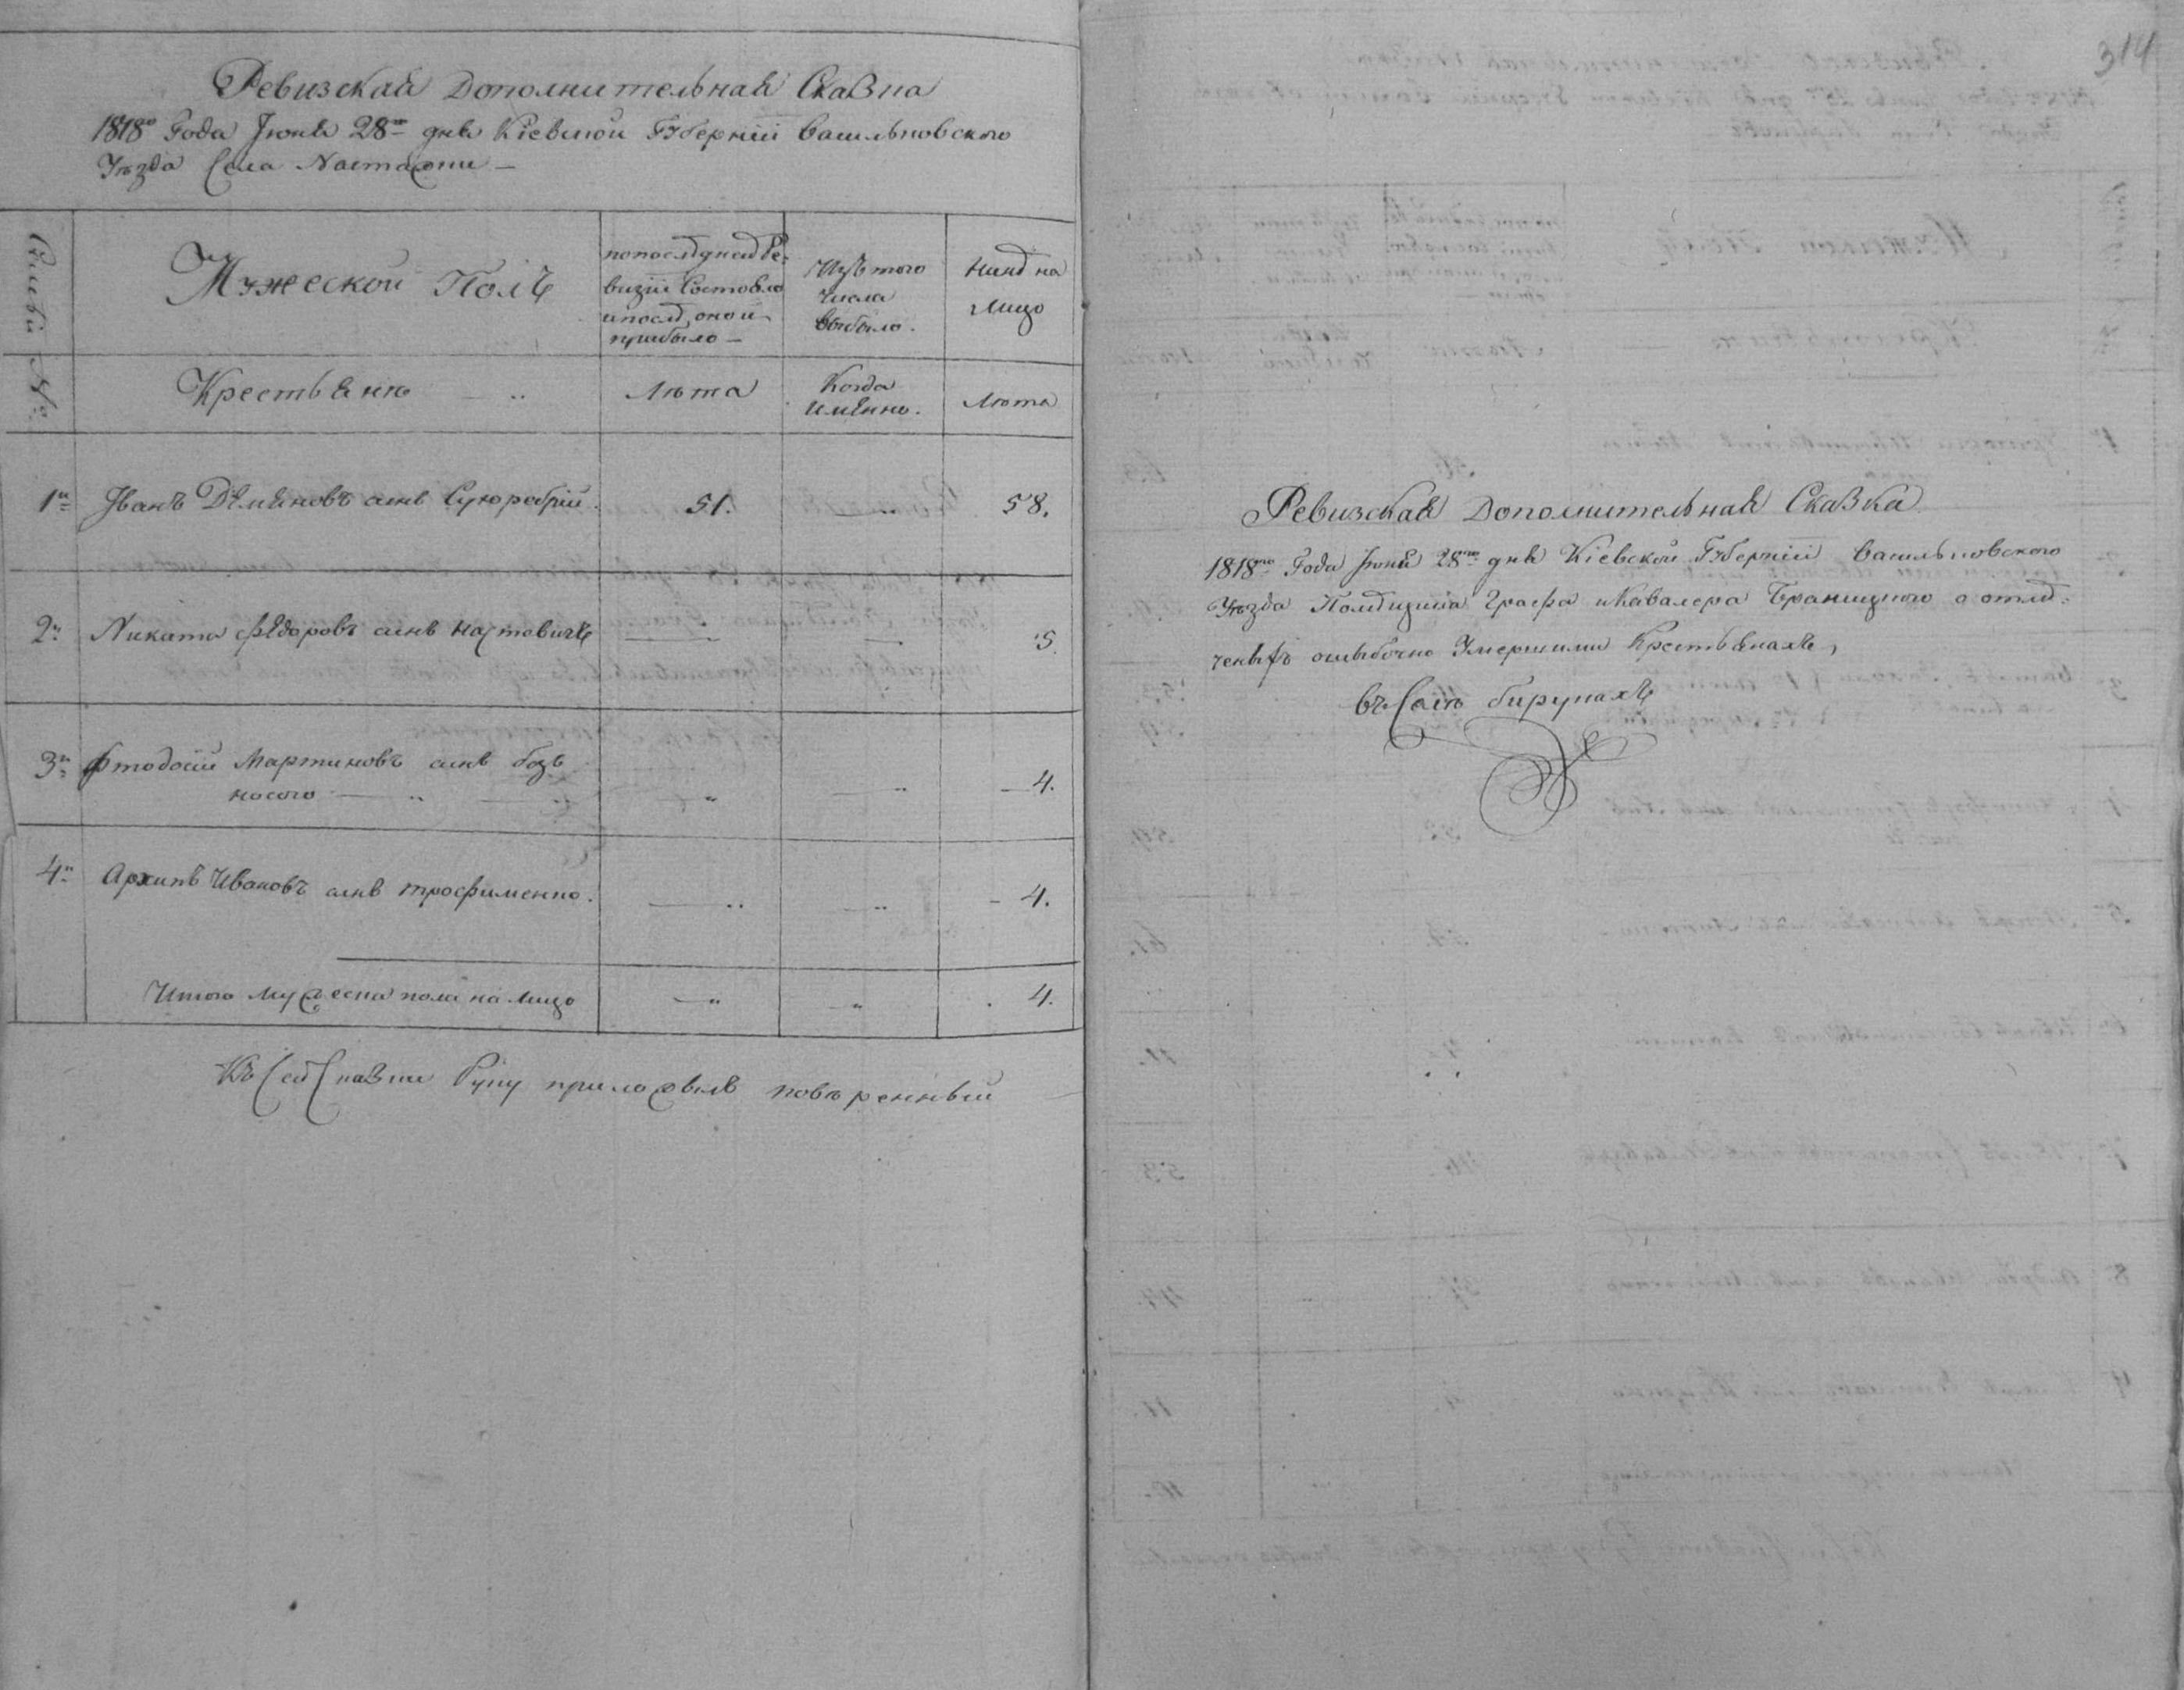 Ревизская Дополнительная Сказка
1818го Года Июня 28го дня Кіевской Губерніи Васильковского
Уѣзда Села Насташки —
Мужеской Полъ
по последней Ре-
визіи Состояло
и после оной
прибыло —
Изъ того
числа
выбыло.
Ныне на
Лицо
№
Крестьяне
Лѣта
Когда
имянно.
Лѣта
1й Иванъ Демяновъ сынъ Сухоребрій. 51. 58.
2й Никита Федоровъ сынъ 5.
3й Феодосій Мартиновъ сынъ без
носого — 4.
4й Архипъ Ивановъ сынъ трофименко. — 4.
Итого мужеска пола на лицо 4.
Къ Сей Сказки Руку приложилъ повѣренный
314
Ревизская Дополнительная Сказка
1818го Года Июня 28го дня Кіевской Губерніи Васильковского
Уѣзда Помещика Графа и Кавалера Браницкого о отме-
ченыхъ ошыбочно Умершими Крестьянахъ,
въ Селѣ бирукахъ